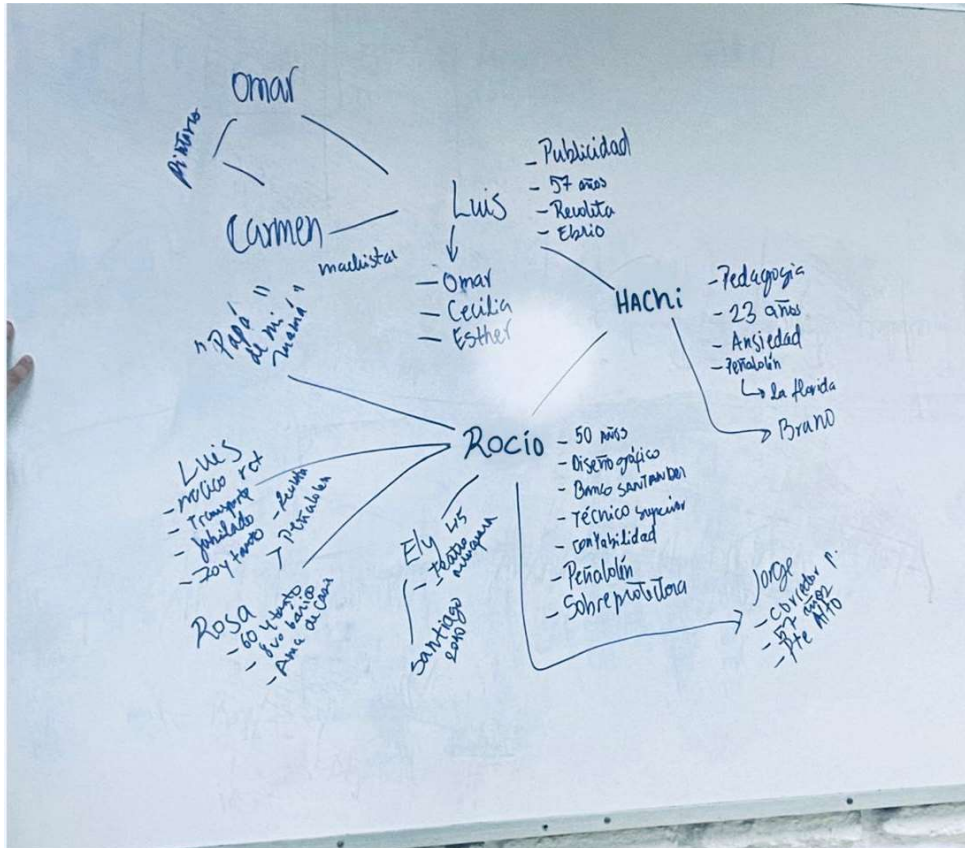 Omar
Pintores
Carmen
machistas
Luis
- Publicidad
- 57 años
- Recoleta
- Ebrio
- Omar
- Cecilia
- Esther
HAChi
- Pedagogia
- 23 años
- Ansiedad
- Peñalolén
la florida
Bruno
"Papá"
de mi
mamá"
Rocío
- 50 años
- Diseño gráfico
- Banco SANTANDER
- Técnico superior
- contabilidad
- Peñalolén
- Sobreprotectora
Luis
- Transporte
- Jubilado
- 70 y tanto
- Peñalolen
Rosa
- 60 y tanto
- 8vo basico
- Ama de Casa
Ely 45
- Teatro
Santiago
2010
Jorge
- Corredor p.
- 57 años
- Pte Alto